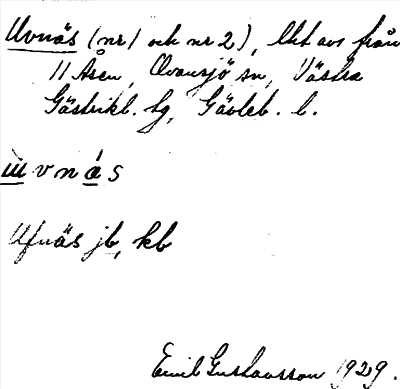 Uvnäs (nr 1 och nr 2), lht avs från
11 Åsen, Ovansjö sn, Västra
Gästrikl. hg, Gävleb. l.
ɯvnás
Ufnäs jb, kb
Emil Gustavsson 1929.